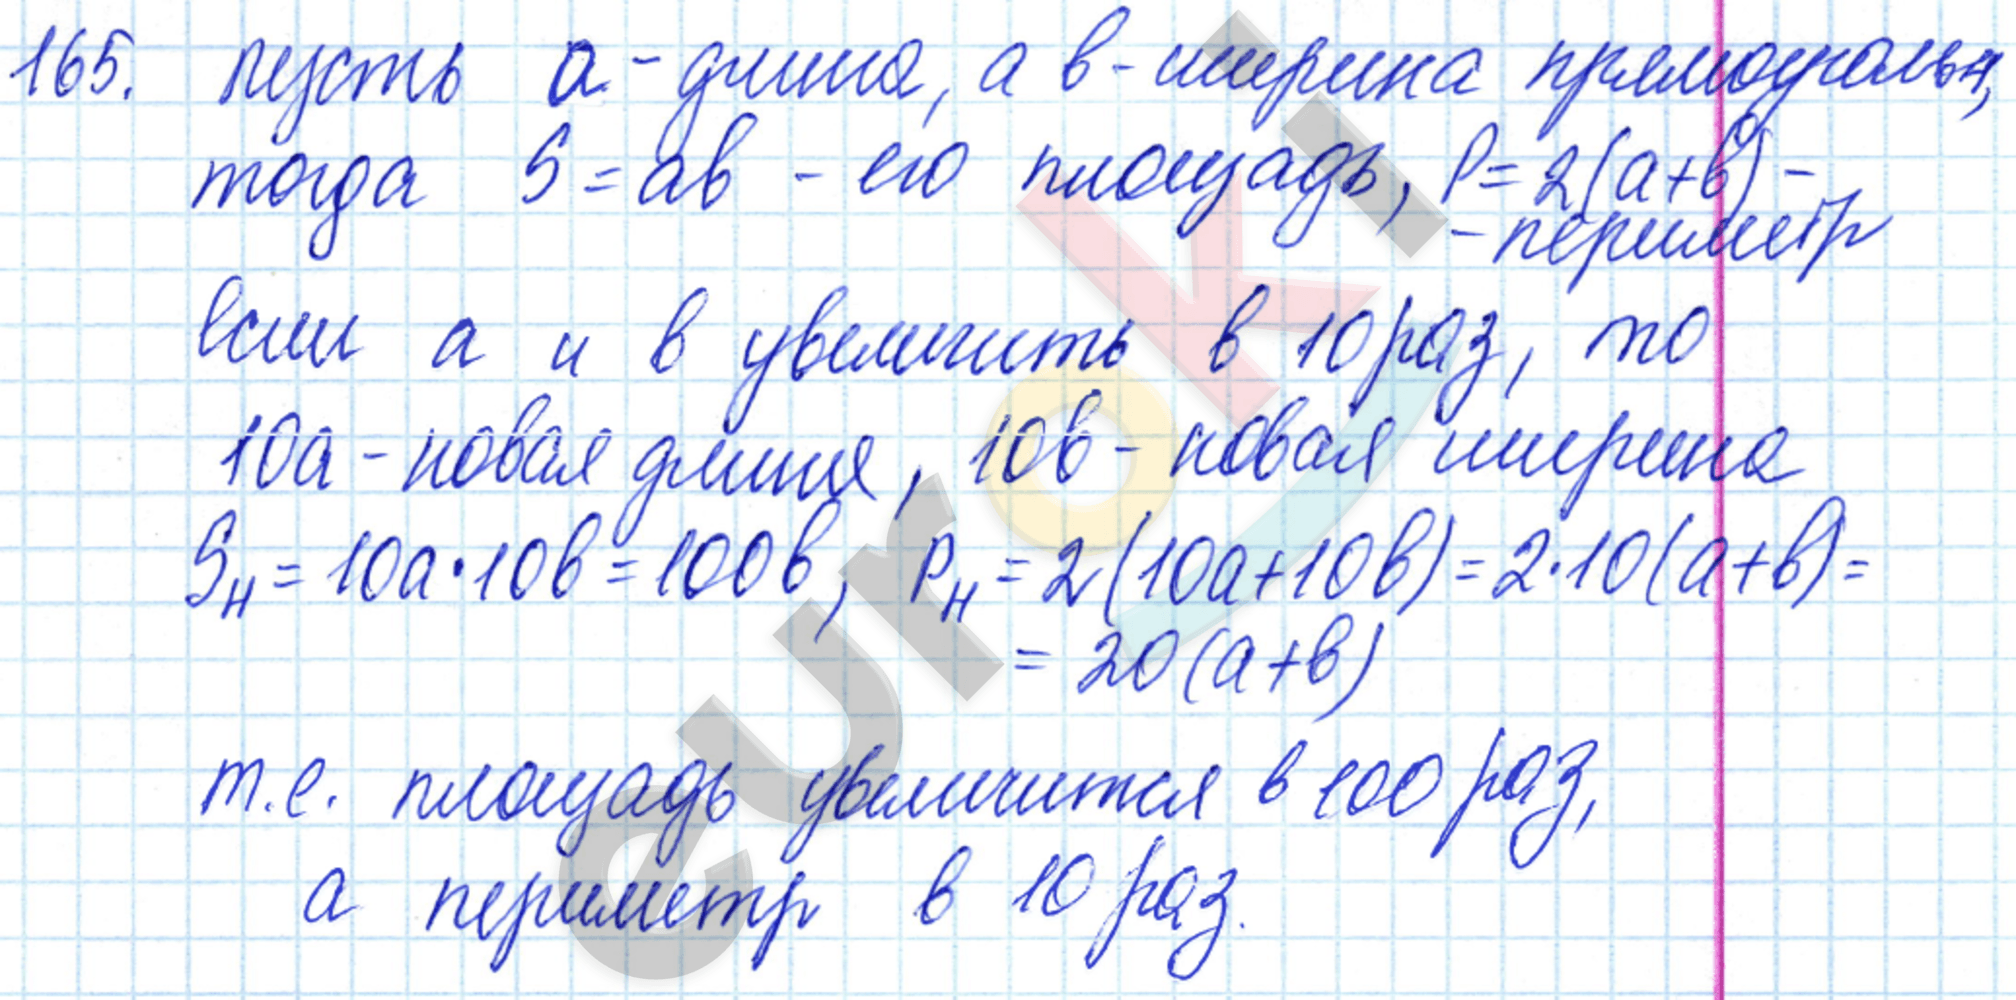 165. пусть a - длина, а в - ширина прямоугольн,
тогда S = ав - его площадь, P = 2(a+в) -
- периметр
если а и в увеличить в 10 раз, то
10а - новая длина, 10в - новая ширина
Sн = 10а·10в = 100в, Pн = 2(10а+10в) = 2·10(а+в) =
= 20(а+в)
т.е. площадь увеличится в 100 раз,
а периметр в 10 раз.
euroki